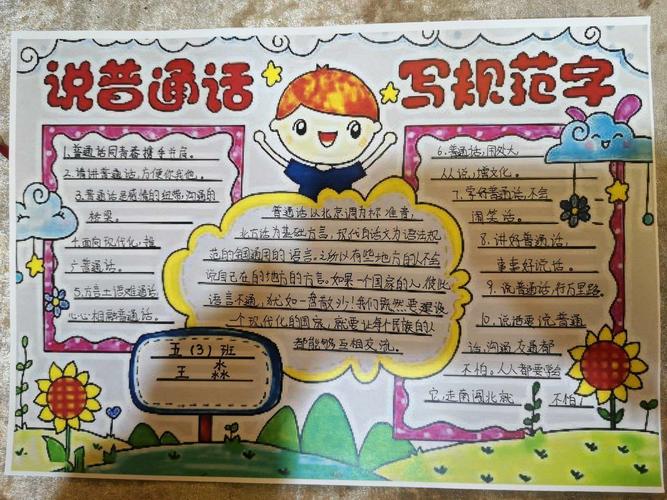 说普通话
写规范字
1.普通话同青春携手并肩。
2.请讲普通话,方便你我他。
3.普通话是感情的纽带,沟通的
桥梁。
4.面向现代化,推
广普通话。
5.方言土语难通话
心心相融普通话。
普通话以北京调为标准音,
北方话为基础方言,现代白话文为语法规
范的全国通用的语言。之所以有些地方的人不会
说自己在的地方的方言。如果一个国家的人,彼此
语言不通,就如一盘散沙!我们既然要建设
一个现代化的国家,就要让每个民族的人
都能够互相交流。
五(3)班
王 淼
6.普通话,用处大
人人说,增文化。
7.学好普通话,不会
闹笑话。
8.讲好普通话,
事事好说话。
9.说普通话,行万里路。
10.说话要说普通
话,沟通交通都
不怕。人人都要学会
它,走南闯北就 不怕!